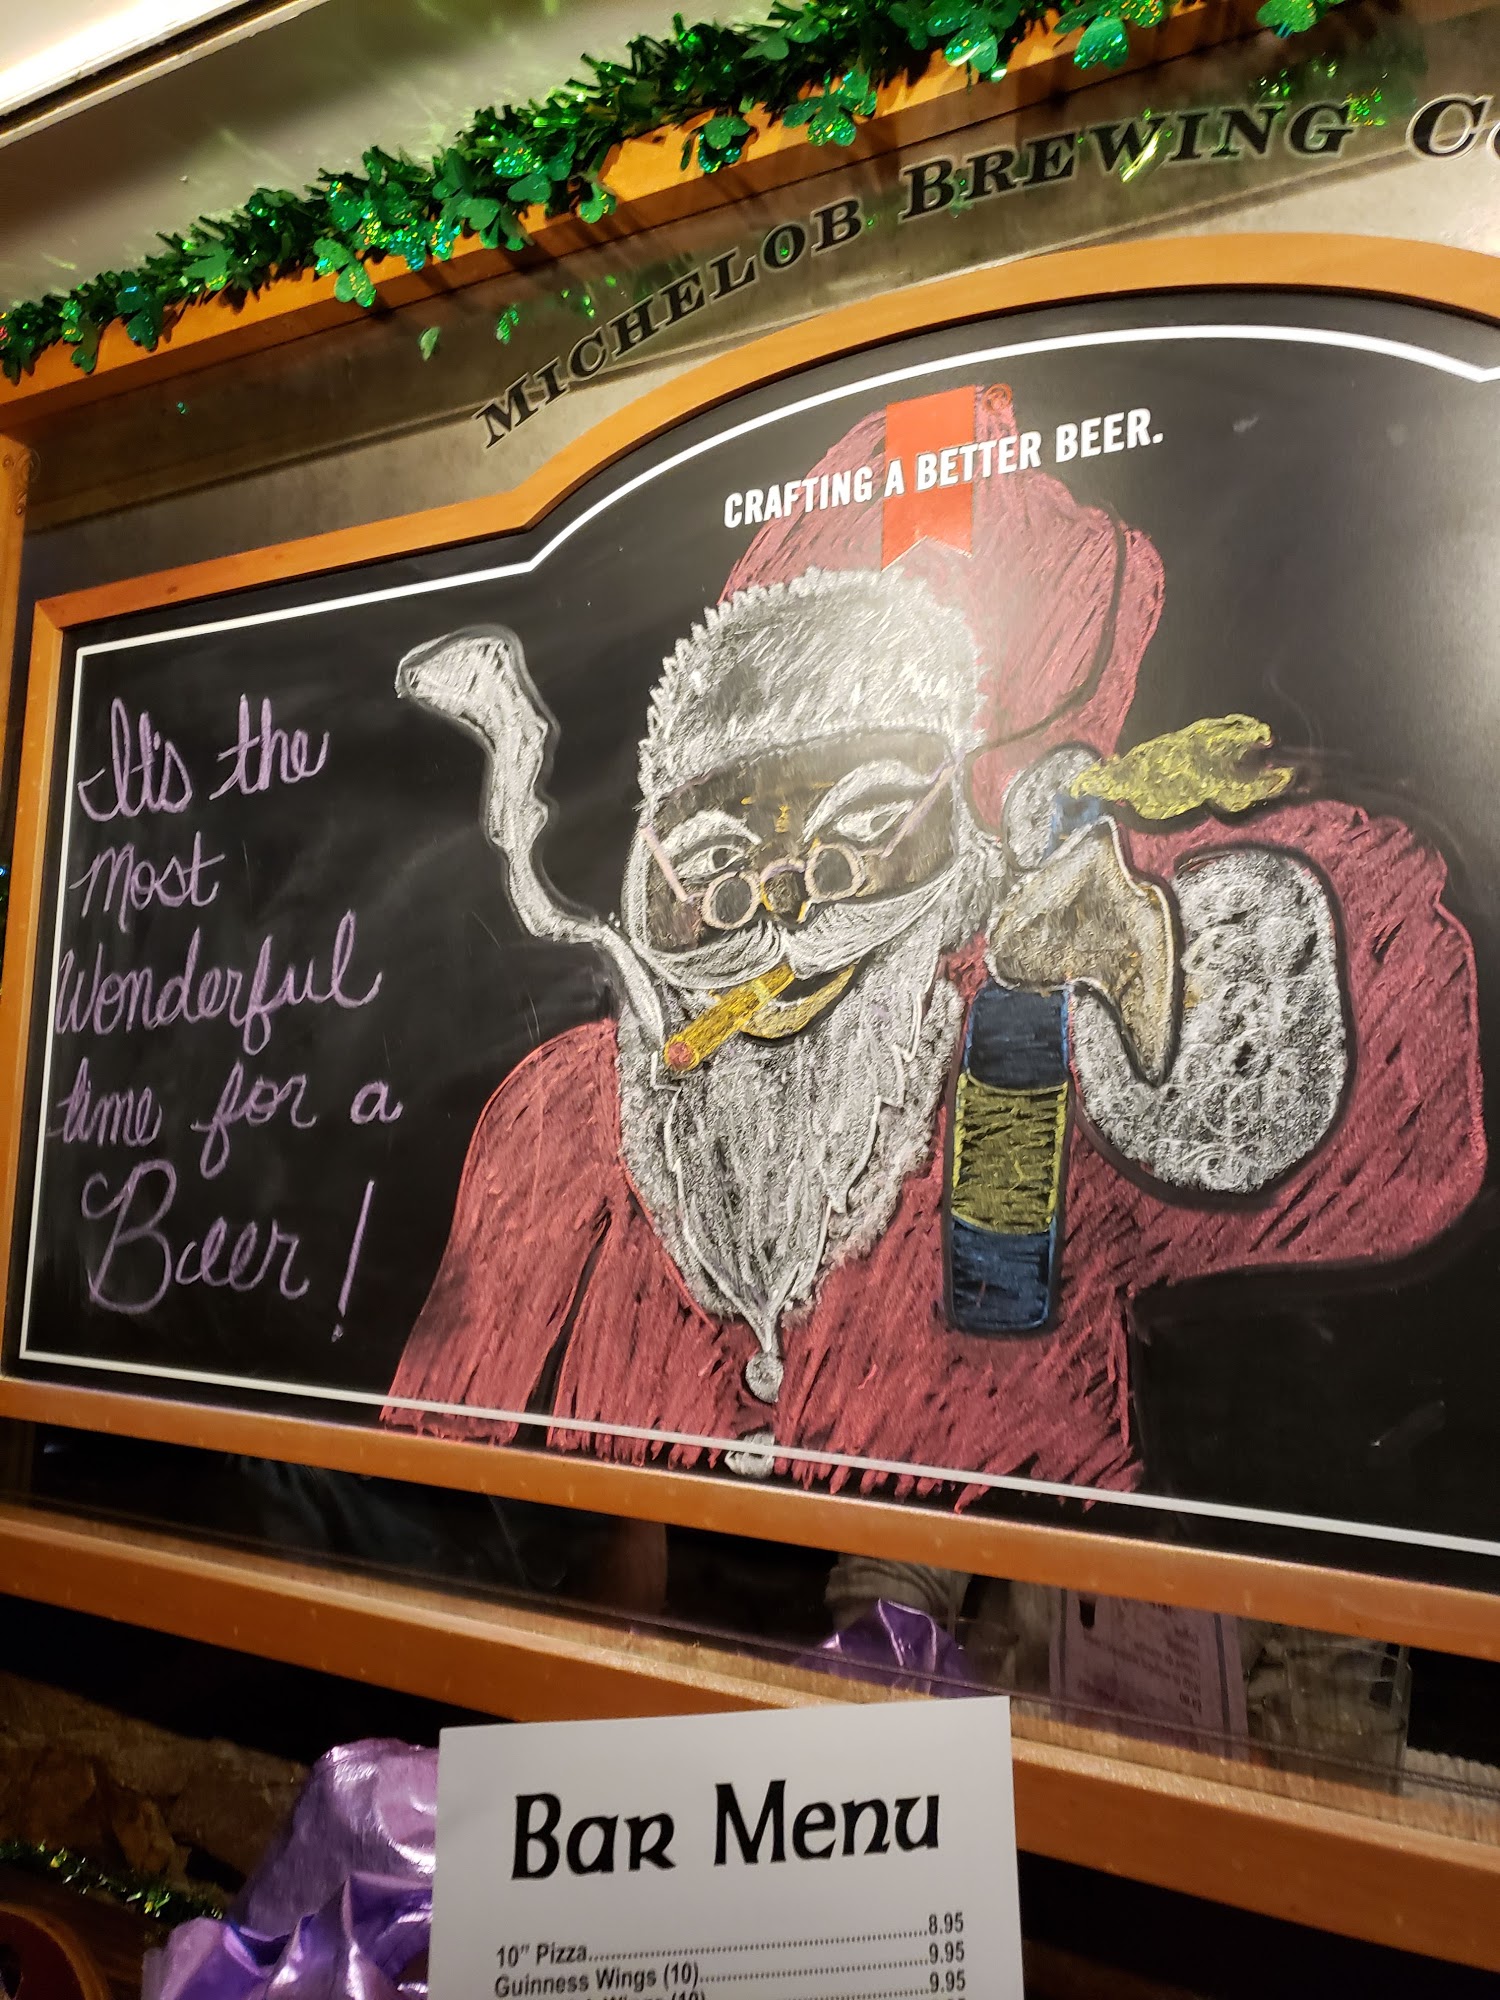 MICHELOB BREWING
CRAFTING A BETTER BEER.
It's the
Most
Wonderful
time for a
Beer!
Bar Menu
10” Pizza 8.95
Guinness Wings (10) 9.95
9.95